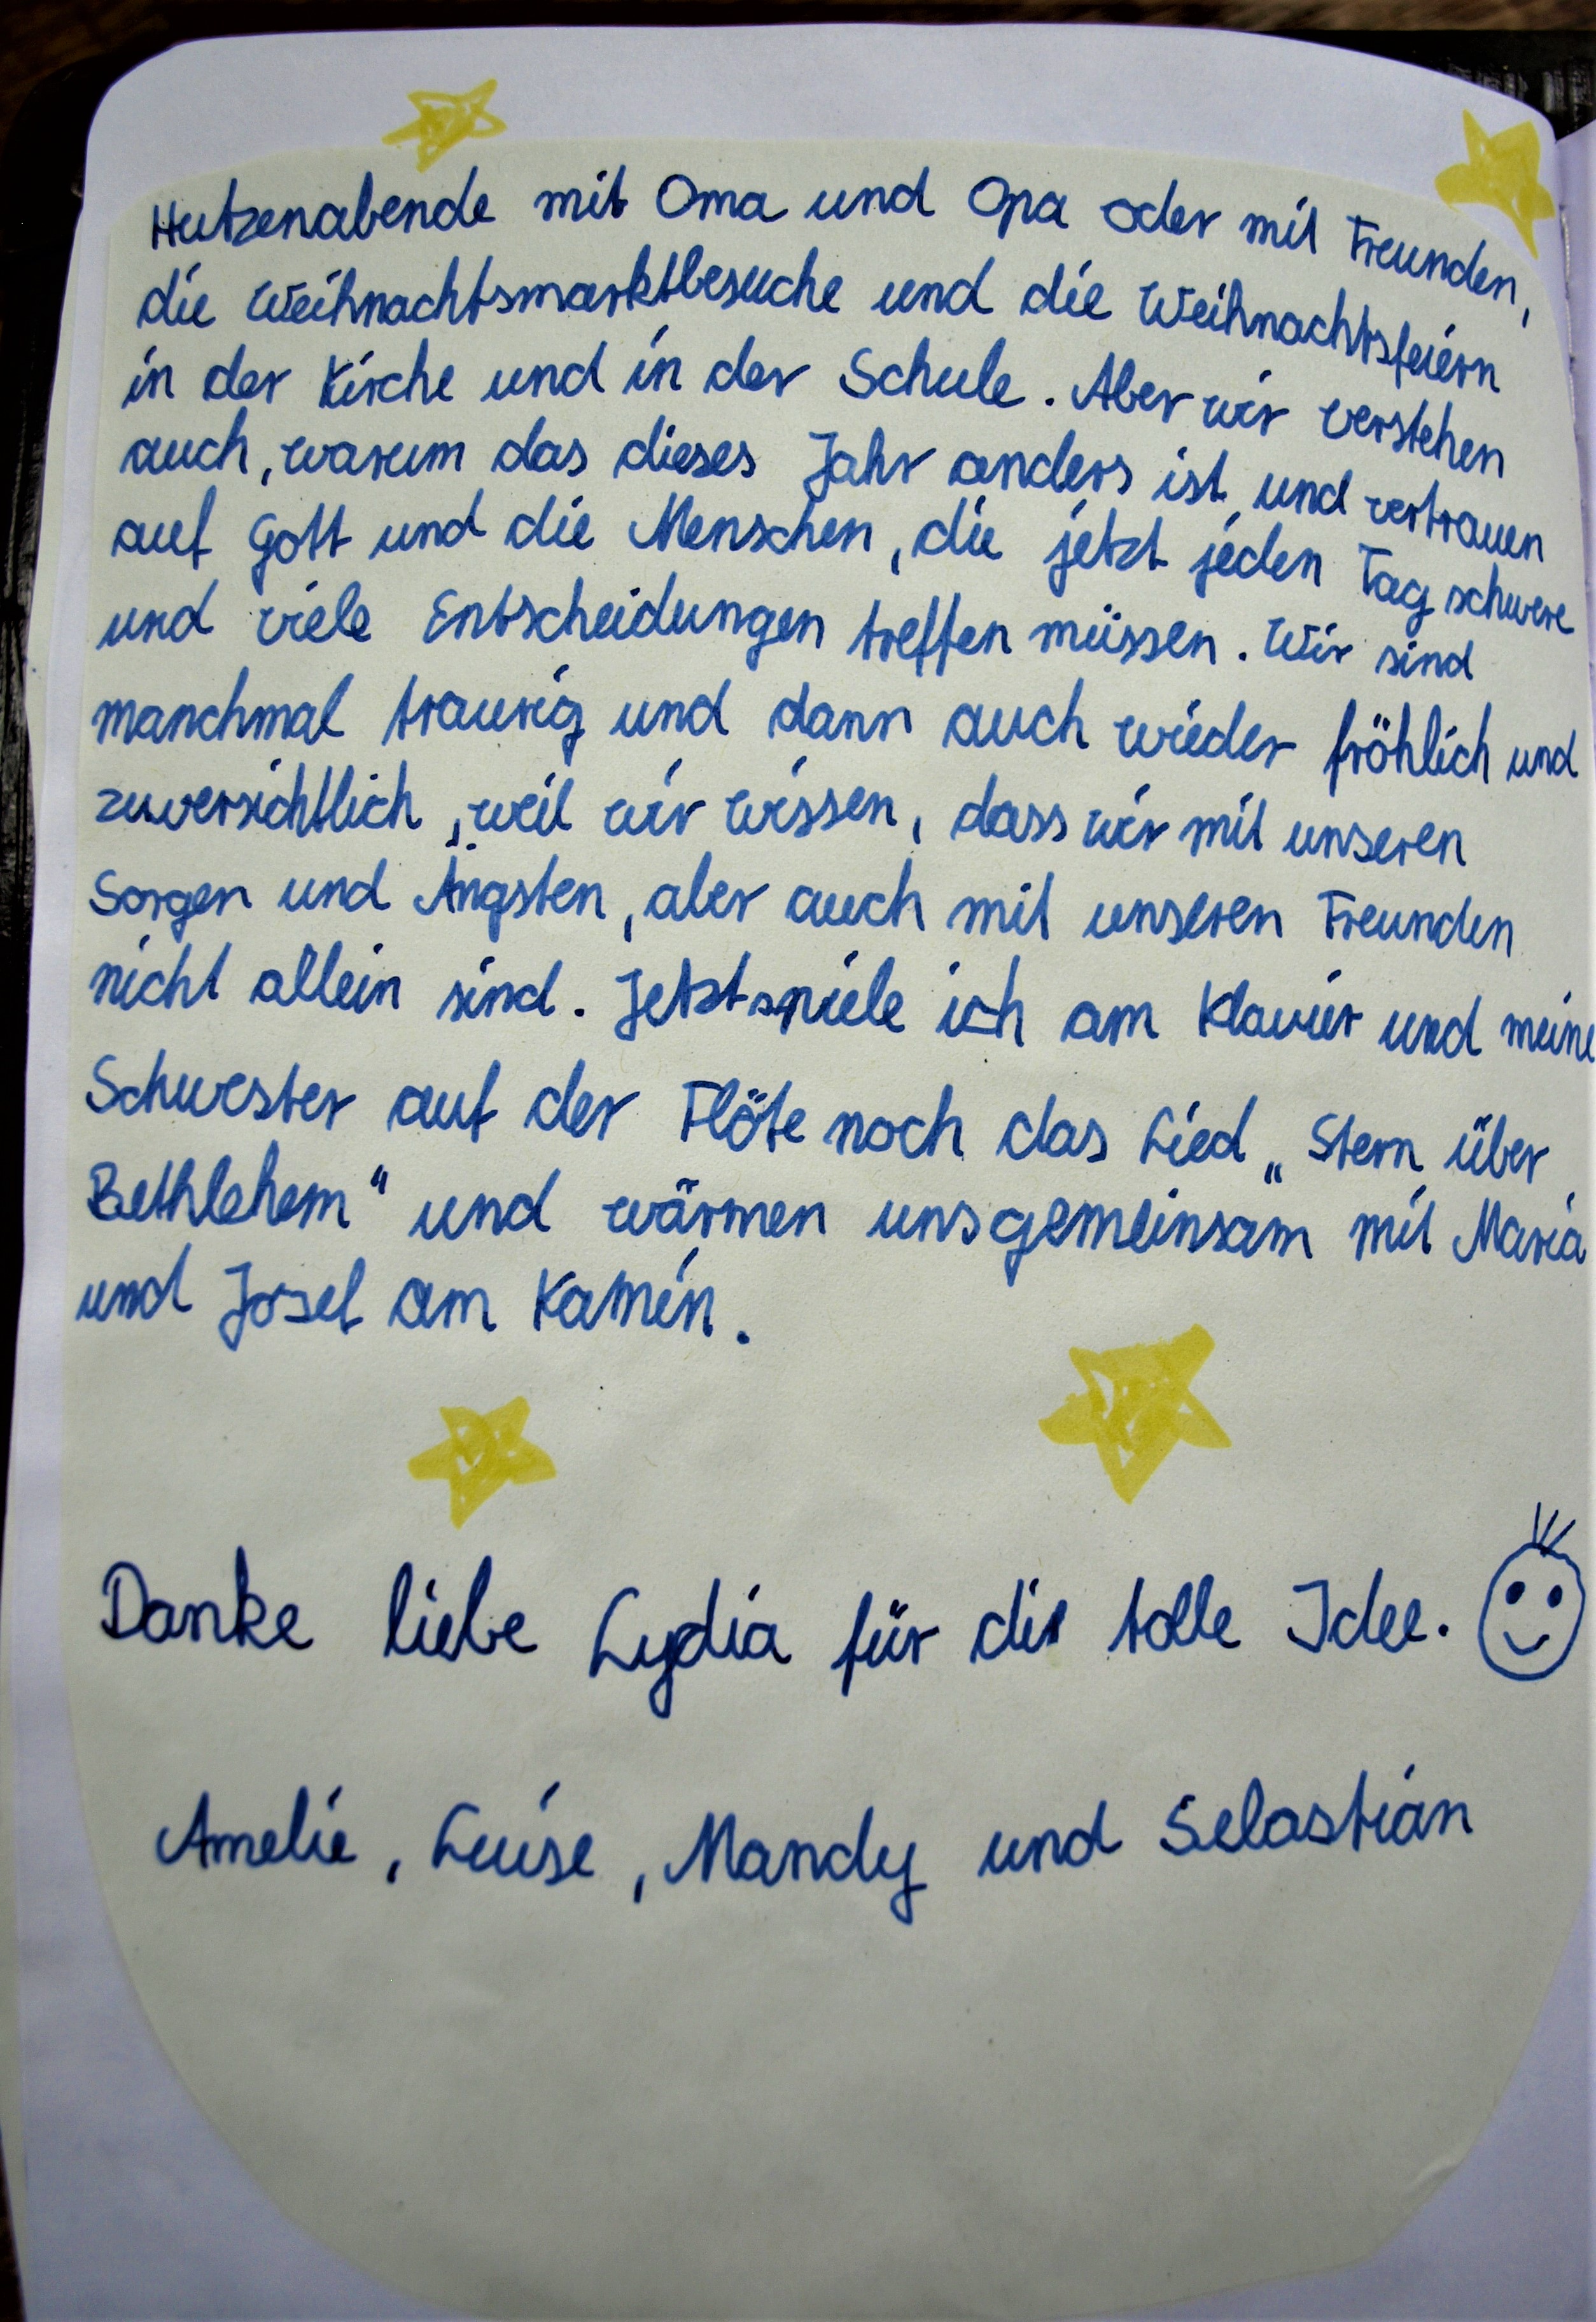 Hutzenabende mit Oma und Opa oder mit Freunden,
die Weihnachtsmarktbesuche und die Weihnachtsfeiern
in der Kirche und in der Schule. Aber wir verstehen
auch, warum das dieses Jahr anders ist, und vertrauen
auf Gott und die Menschen, die jetzt jeden Tag schwere
und viele Entscheidungen treffen müssen. Wir sind
manchmal traurig und dann auch wieder fröhlich und
zuversichtlich, weil wir wissen, dass wir mit unseren
Sorgen und Ängsten, aber auch mit unseren Freunden
nicht allein sind. Jetzt spiele ich am Klavier und meine
Schwester auf der Flöte noch das Lied „Stern über
Bethlehem“ und wärmen uns gemeinsam mit Maria
und Josef am Kamin.
Danke liebe Lydia für die tolle Idee.
Amelie, Luise, Mandy und Sebastian